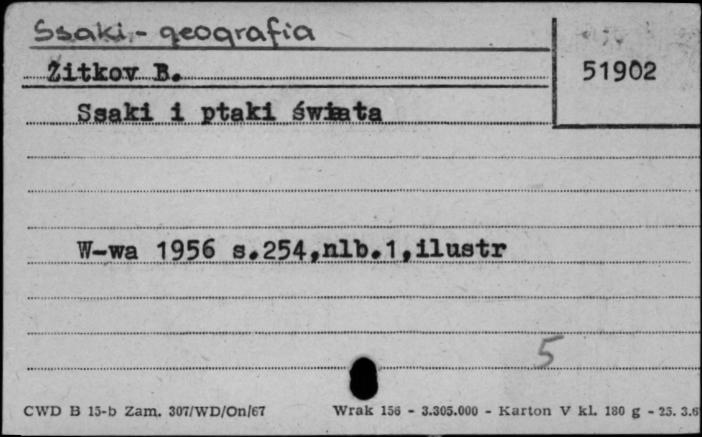 Ssaki - geografia
Żitkov B.
51902
Ssaki i ptaki świata
W-wa 1956 s.254,nlb.1,ilustr
5
CWD B 15-b Zam. 307/WD/On/67
Wrak 156 - 3.305.000 - Karton V kl. 180 g - 25. 3.6